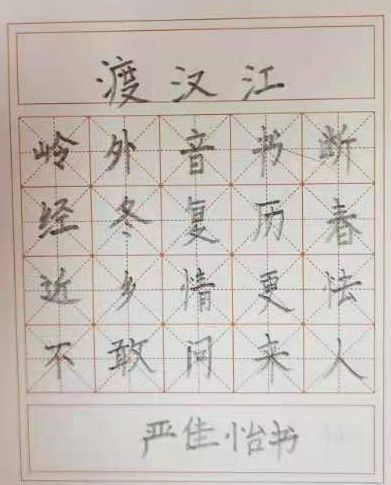 渡汉江
岭外音书断
经冬复历春
近乡情更怯
不敢问来人
严佳怡书